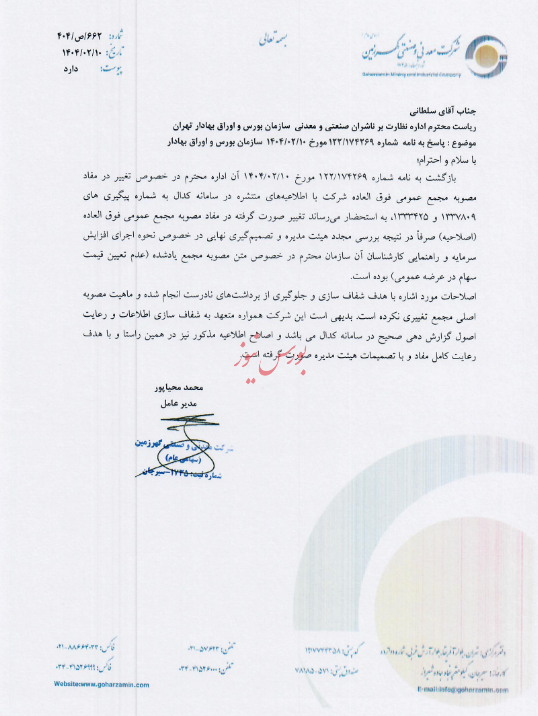 بسمه تعالی
شرکت معدنی و صنعتی گهرزمین
Goharzamin Mining and Industrial Company
شماره: ۶۶۲/ص/۴۰۴
تاریخ: ۱۴۰۴/۰۲/۱۰
پیوست: دارد
جناب آقای سلطانی
ریاست محترم اداره نظارت بر ناشران صنعتی و معدنی سازمان بورس و اوراق بهادار تهران
موضوع : پاسخ به نامه شماره ۱۲۲/۱۷۴۲۶۹ مورخ ۱۴۰۴/۰۲/۱۰ سازمان بورس و اوراق بهادار
با سلام و احترام؛
بازگشت به نامه شماره ۱۲۲/۱۷۴۲۶۹ مورخ ۱۴۰۴/۰۲/۱۰ آن اداره محترم در خصوص تغییر در مفاد
مصوبه مجمع عمومی فوق العاده شرکت با اطلاعیه‌های منتشره در سامانه کدال به شماره پیگیری های
۱۳۳۷۸۰۹ و ۱۳۳۳۴۲۵، به استحضار می‌رساند تغییر صورت گرفته در مفاد مصوبه مجمع عمومی فوق العاده
(اصلاحیه) صرفاً در نتیجه بررسی مجدد هیئت مدیره و تصمیم‌گیری نهایی در خصوص نحوه اجرای افزایش
سرمایه و راهنمایی کارشناسان آن سازمان محترم در خصوص متن مصوبه مجمع یادشده (عدم تعیین قیمت
سهام در عرضه عمومی) بوده است.
اصلاحات مورد اشاره با هدف شفاف سازی و جلوگیری از برداشت‌های نادرست انجام شده و ماهیت مصوبه
اصلی مجمع تغییری نکرده است. بدیهی است این شرکت همواره متعهد به شفاف سازی اطلاعات و رعایت
اصول گزارش دهی صحیح در سامانه کدال می باشد و اصلاح اطلاعیه مذکور نیز در همین راستا و با هدف
رعایت کامل مفاد و با تصمیمات هیئت مدیره صورت گرفته است.
بورس نیوز
محمد محیاپور
مدیر عامل
شرکت معدنی و صنعتی گهرزمین
(سهامی عام)
شماره ثبت: ۱۷۴۵-سیرجان
تلفن:
فاکس:
Website:www.goharzamin.com
E-mail:info@goharzamin.com